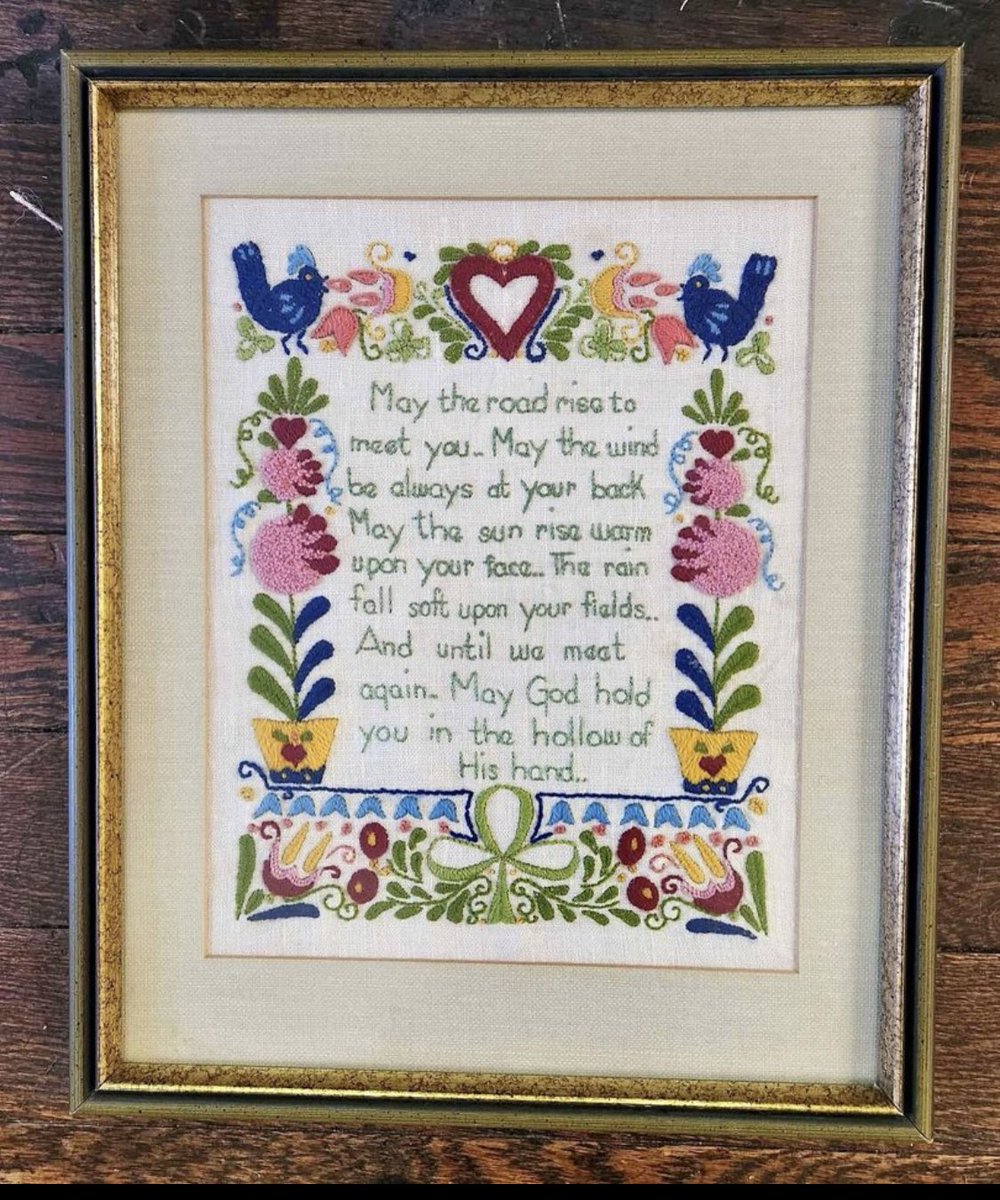 May the road rise to
meet you.. May the wind
be always at your back
May the sun rise warm
upon your face.. The rain
fall soft upon your fields..
And until we meet
again.. May God hold
you in the hollow of
His hand..